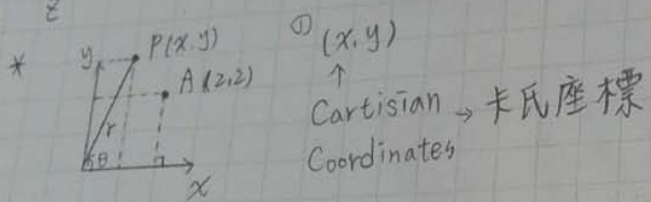 z
* y P(x.y)
A (2,2)
r
θ
x
① (x,y)
↑
Cartisian → 卡氏座標
Coordinates